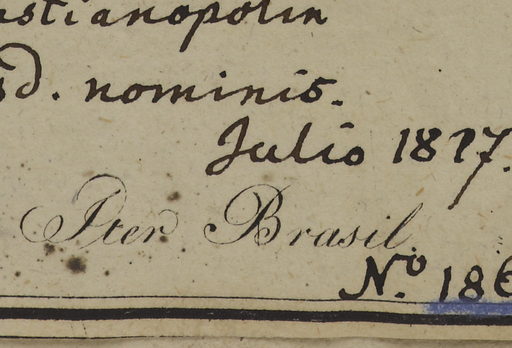 stianopolin
sd. nominis.
Julio 1817.
Iter Brasil.
N.o 186